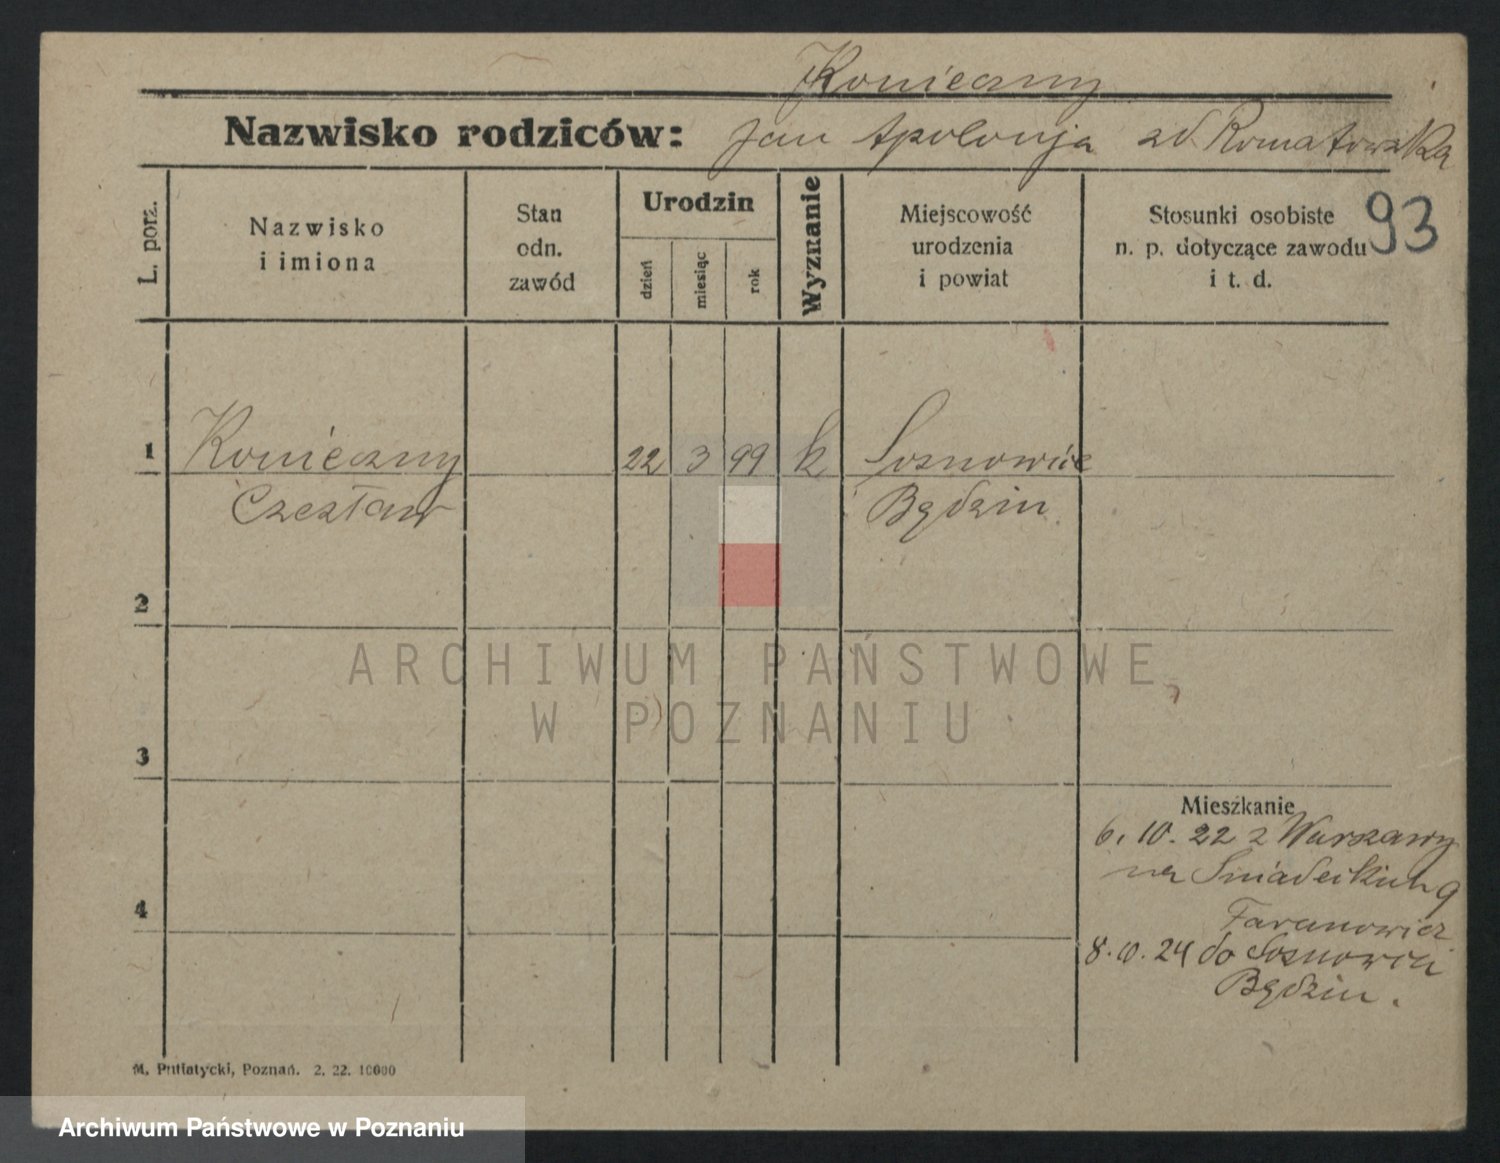 Konieczny
Nazwisko rodziców: Jan Apolonja zd. Romatowska
L. porz.
Nazwisko
i imiona
Stan
odn.
zawód
Urodzin
dzień
miesiąc
rok
Wyznanie
Miejscowość
urodzenia
i powiat
Stosunki osobiste
n. p. dotyczące zawodu
i t. d.
93
1 Konieczny 22 3 99 k Sosnowiec
Czesław Będzin
2
ARCHIWUM PAŃSTWOWE
W POZNANIU
3
Mieszkanie
6. 10. 22 z Warszawy
na Śniadeckich 9
4
Taranowicz
8. 10. 24 do Sosnowca
Będzin.
M. Putiatycki, Poznań. 2. 22. 10000
Archiwum Państwowe w Poznaniu